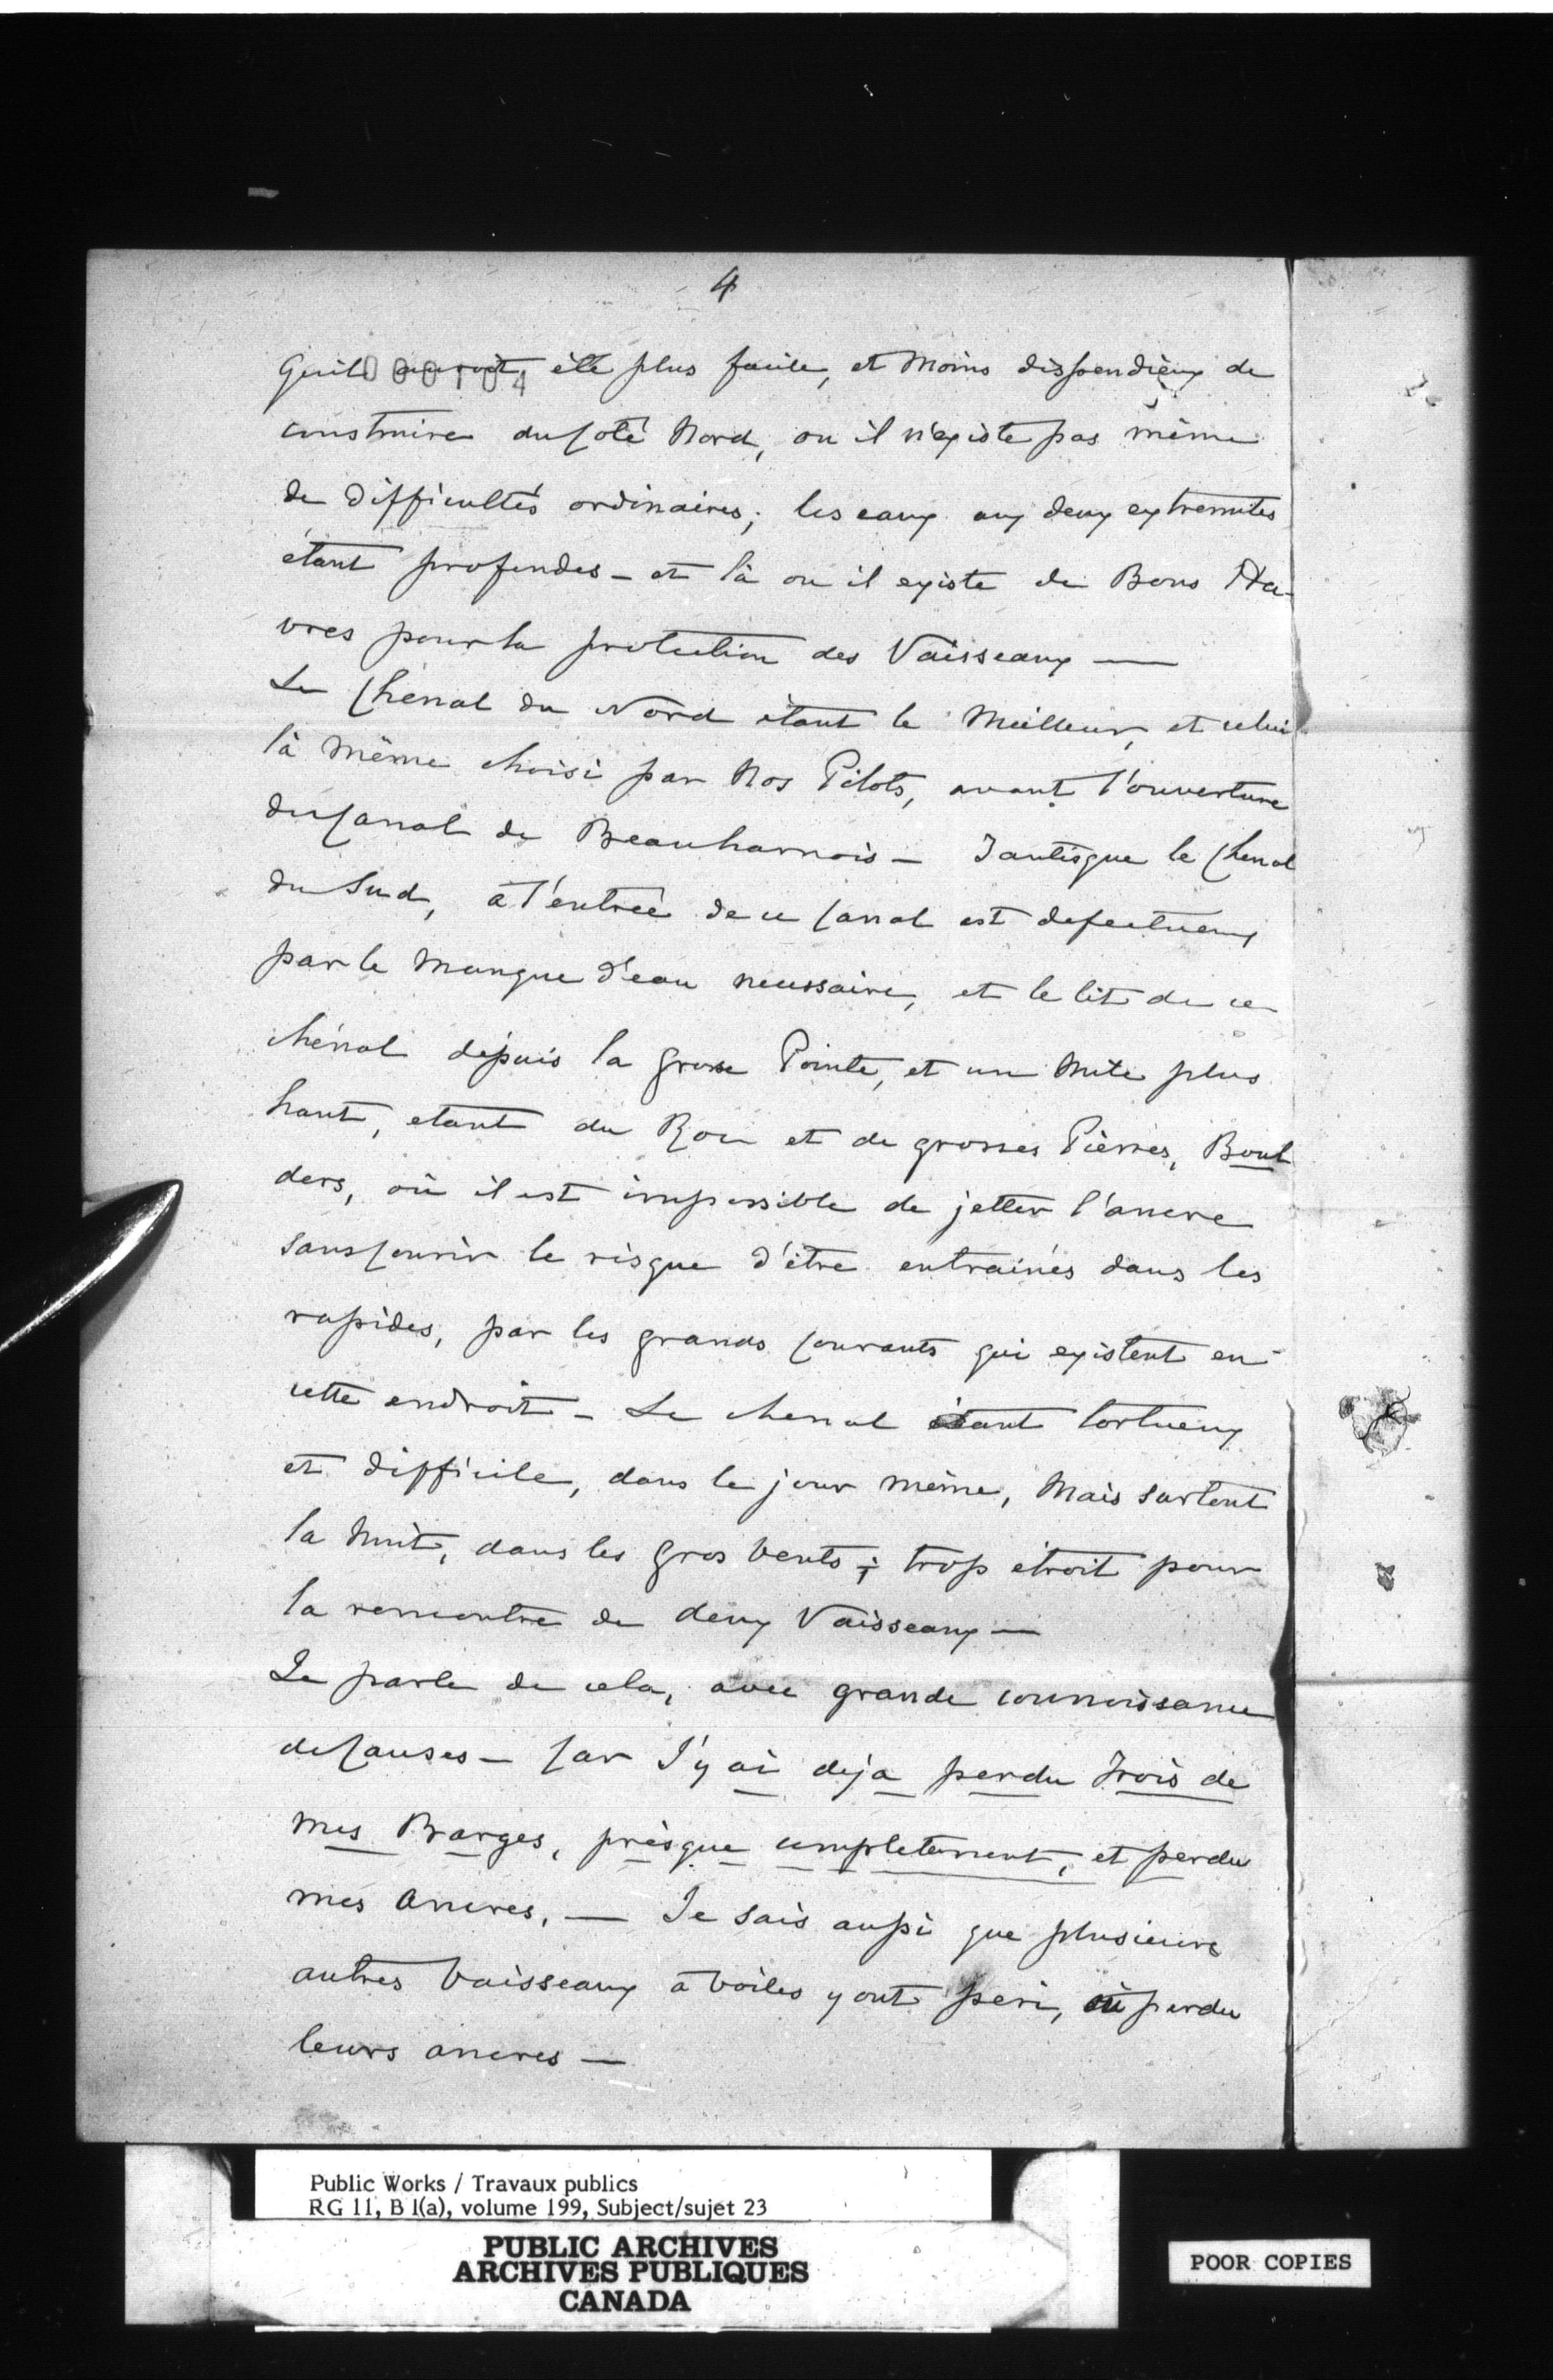 4
Quil auroit été plus facile, et Moins dispendieux de
000104
construire du Coté Nord, ou il n'existe pas même
de difficultés ordinaires; les eaux aux deux extremités
étant profondes - et là ou il existe de Bons Ha-
vres pour la protection des Vaisseaux —
Le Chénal du Nord étant le Meilleur, et celui
là même choisi par Nos Pilots, avant l'ouverture
du Canal de Beauharnois - Tantisque le Chenal
du Sud, à l'entrée de ce Canal est defectueux
par le Manque d'eau necessaire, et le lit de ce
chénal depuis la grosse Pointe, et un Mile plus
haut, etant du Roc et de grosses Pièrres, Boul
ders, où il est impossible de jetter l'ancre
sans Courir le risque d'être entrainés dans les
rapides, par les grands Courants qui existent en
cette endroit - Le chenal étant tortueux
et difficile, dans le jour même, Mais surtout
la Nuit, dans les gros Vents; trop étroit pour
la rencontre de deux Vaisseaux —
Je parle de cela, avec grande connoissance
de Causes - Car J'y ai deja perdu Trois de
mes Barges, prèsque completement, et perdu
mes Ancres, — Je sais aussi que plusieurs
autres Vaisseaux à Voiles y ont peri, ou perdu
leurs ancres —
Public Works / Travaux publics
RG 11, B 1(a), volume 199, Subject/sujet 23
PUBLIC ARCHIVES
ARCHIVES PUBLIQUES
CANADA
POOR COPIES